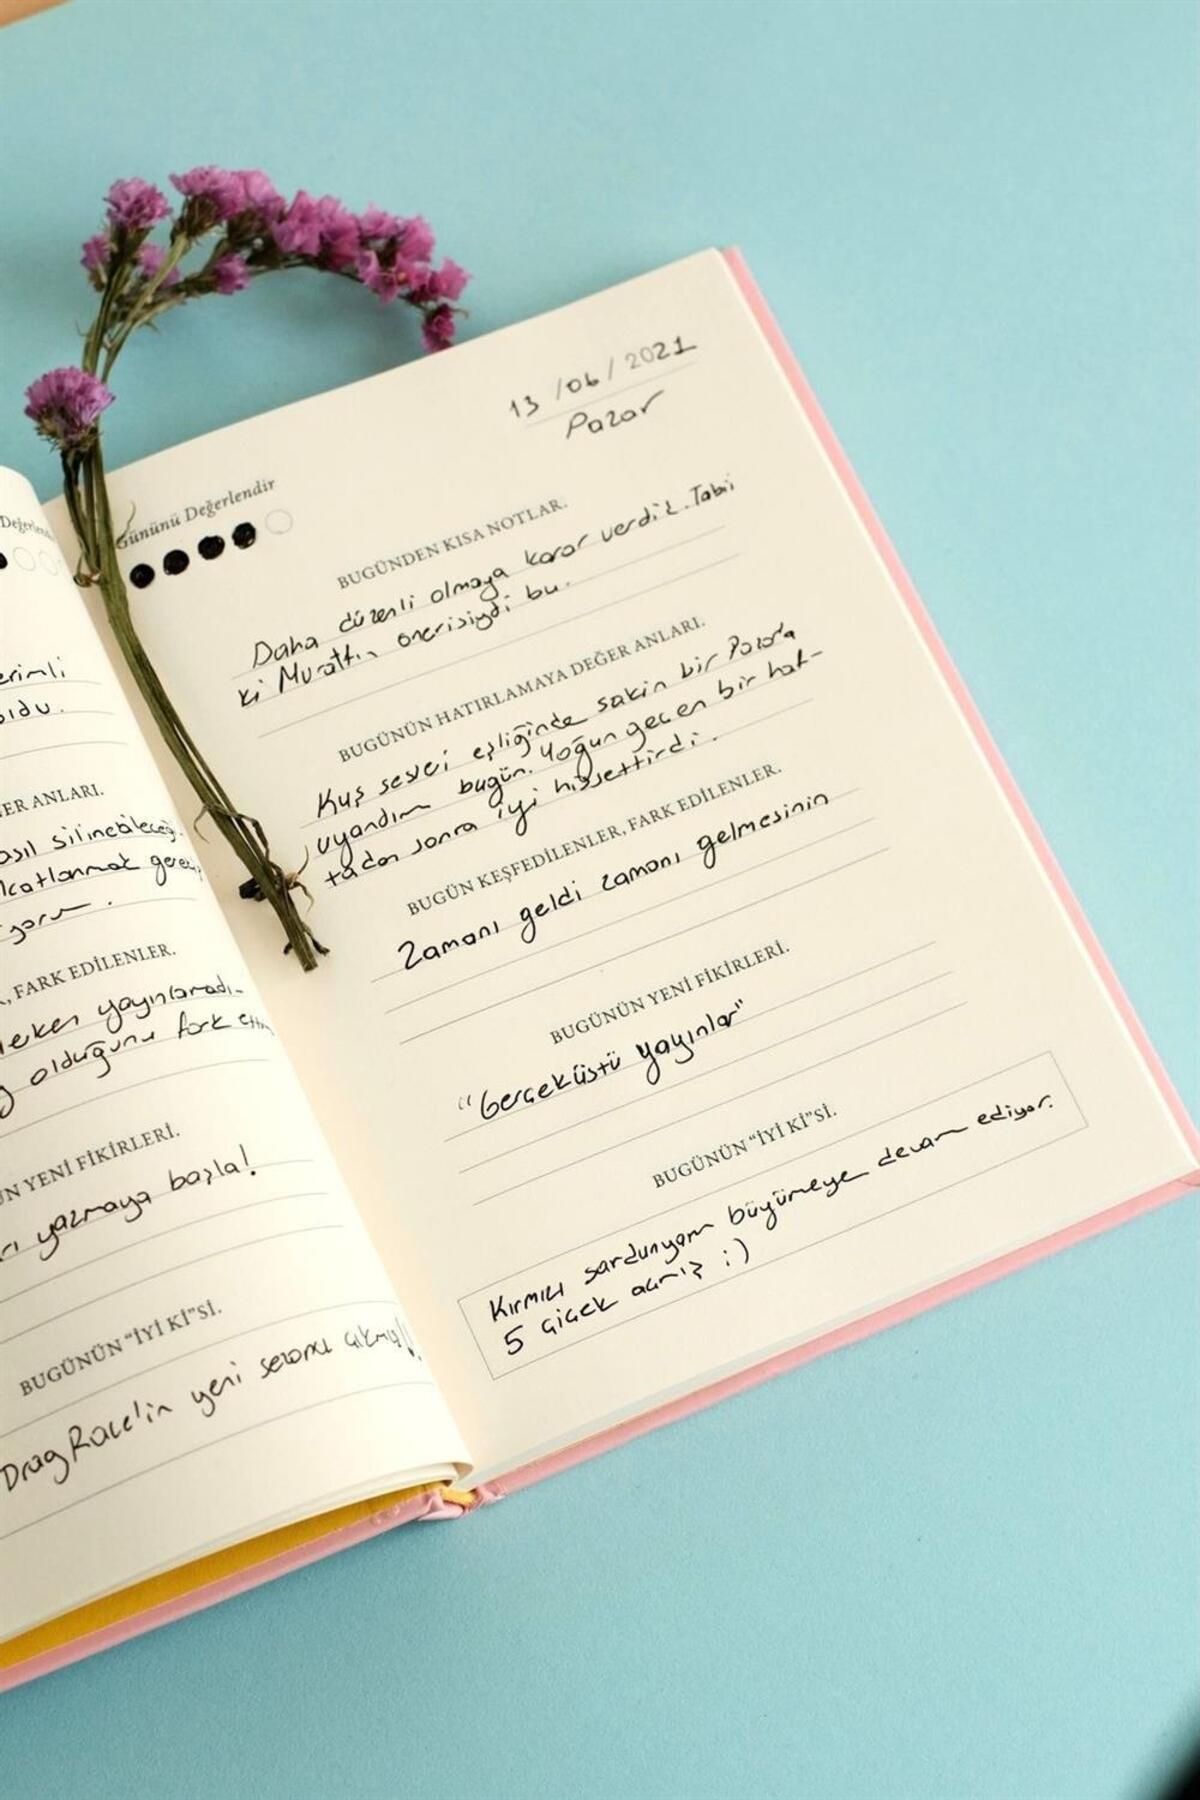 Değerlendir
erimli
oldu.
ER ANLARI.
asıl silinebileceği
gorum.
, FARK EDİLENLER.
yayınlamadı-
olduğunu fark ettim
N YENİ FİKİRLERİ.
yazmaya başla!
BUGÜNÜN “İYİ Kİ”Sİ.
Drag Race'in yeni sezonu çıkmış!!
13/06/2021
Pazar
Gününü Değerlendir
BUGÜNDEN KISA NOTLAR.
Daha düzenli olmaya karar verdik. Tabii
ki Murat'ın önerisiydi bu.
BUGÜNÜN HATIRLAMAYA DEĞER ANLARI.
Kuş sesleri eşliğinde sakin bir Pazar'a
uyandım bugün. Yoğun geçen bir haf-
tadan sonra iyi hissettirdi.
BUGÜN KEŞFEDİLENLER, FARK EDİLENLER.
Zamanı geldi zamanı gelmesinin
BUGÜNÜN YENİ FİKİRLERİ.
“Gerçeküstü yayınlar”
BUGÜNÜN “İYİ Kİ”Sİ.
Kırmızı sardunyam büyümeye devam ediyor.
5 çiçek açmış :)